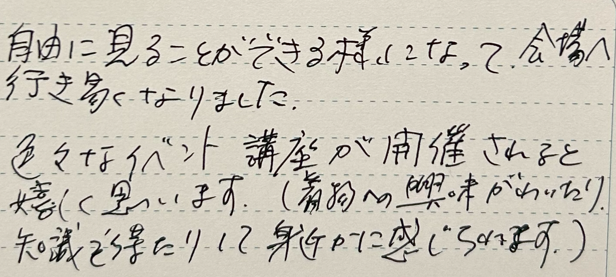 自由に見ることができる様になって、会場へ
行き易くなりました。
色々なイベント 講座が開催されると
嬉しく思います。(着物への興味がわいたり、
知識を得たりして身近かに感じられます。)